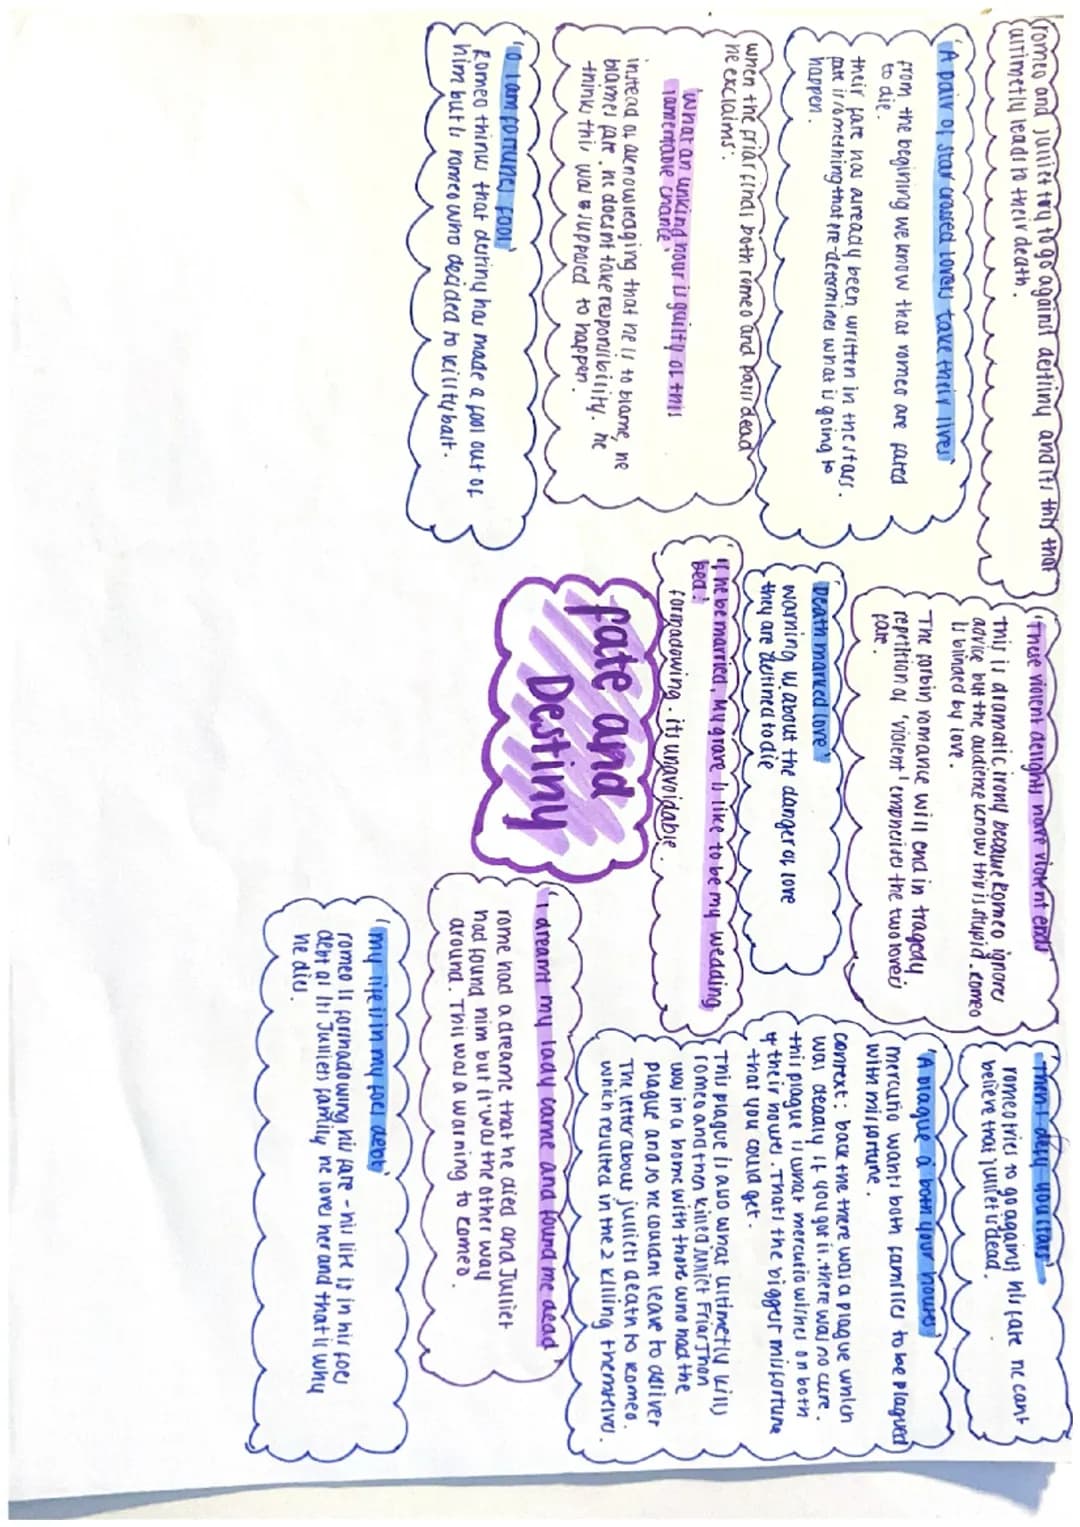 romeo and julliet try to go against destiny and its this that
ultimetly leads to their death.
'A pair of star crossed lovers take their lives'
from the begining we know that romeo are fated
to die.
their fate has already been written in the stars.
fate is something that pre-determines what is going to
happen.
when the friar finds both romeo and paris dead
he exclaims:
'what an unkind hour is guilty of this
lamentable chance'
instead of acknowleaging that he is to blame, he
blames fate. he doesnt take responsibility. he
thinks this was supposed to happen.
'O I am fortunes fool'
Romeo thinks that destiny has made a fool out of
him but is romeo who decided to kill tybalt.
'These violent delights have violent ends'
this is dramatic irony because Romeo ignores
advice but the audience know this is stupid. romeo
is blinded by love.
The forbin romance will end in tragedy
repitition of 'violent' emphasises the two lovers
fate.
'Death marked love'
warning us about the danger of love
they are destined to die
'if he be married, My grave is like to be my wedding
bed!'
forshadowing. its unavoidable.
fate and
Destiny
'I dreamt my lady came and found me dead'
rome had a dreame that he died and Julliet
had found him but it was the other way
around. This was a warning to romeo.
'my life is in my foes debt'
romeo is forshadowing his fate - his life is in his foes
debt as its Julliets family he loves her and that is why
he dies.
'Then I defy you stars'
romeo tries to go against his fate he cant
believe that julliet is dead.
'A plague a both your houses'
mercutio wants both families to be plagued
with misfortune.
context: back the there was a plague which
was deadly if you got it. there was no cure.
this plague is what mercutio wishes on both
of their houses. Thats the biggest misfortune
that you could get.
This plague is also what ultimetly kills
romeo and then killed Julliet Friar Jhon
was in a home with those who had the
plague and so he couldnt leave to deliver
The letter about julliets death to romeo.
which resulted in the 2 killing themselves.